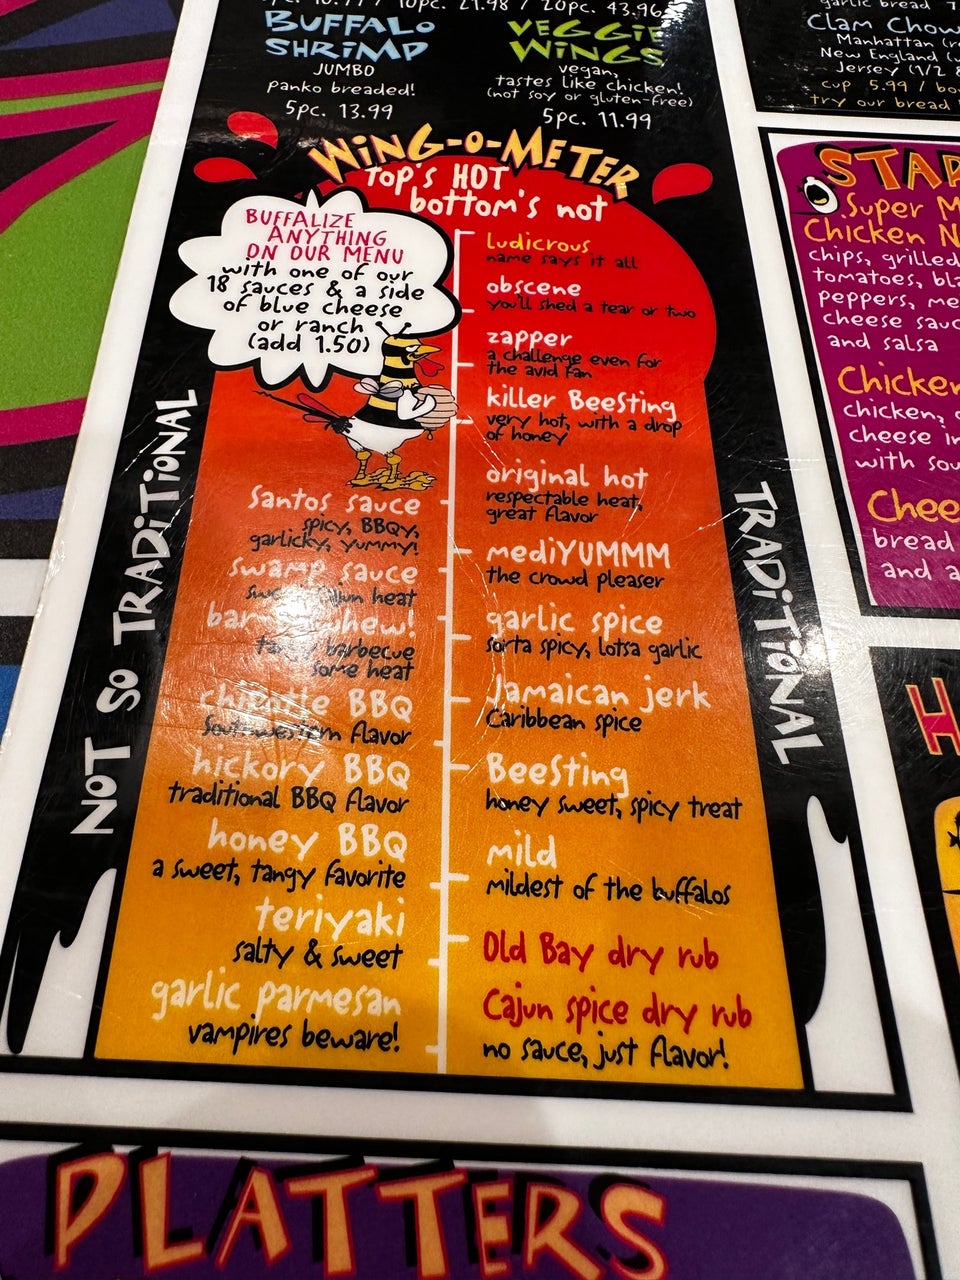 10pc. 21.98 / 20pc. 43.96
BUFFALO
SHRIMP
JUMBO
panko breaded!
5pc. 13.99
VEGGIE
WINGS
vegan,
tastes like chicken!
(not soy or gluten-free)
5pc. 11.99
WING-O-METER
top's HOT
bottom's not
BUFFALIZE
ANYTHING
ON OUR MENU
with one of our
18 sauces & a side
of blue cheese
or ranch
(add 1.50)
NOT SO TRADITIONAL
Santos sauce
spicy, BBQy,
garlicky, yummy!
swamp sauce
Cajun heat
whew!
barbecue
some heat
chipotle BBQ
Southwestern flavor
hickory BBQ
traditional BBQ flavor
honey BBQ
a sweet, tangy favorite
teriyaki
salty & sweet
garlic parmesan
vampires beware!
TRADITIONAL
Ludicrous
name says it all
obscene
you'll shed a tear or two
zapper
a challenge even for
the avid fan
killer BeeSting
very hot, with a drop
of honey
original hot
respectable heat,
great flavor
mediYUMMM
the crowd pleaser
garlic spice
sorta spicy, lotsa garlic
Jamaican jerk
Caribbean spice
BeeSting
honey sweet, spicy treat
mild
mildest of the buffalos
Old Bay dry rub
Cajun spice dry rub
no sauce, just flavor!
garlic bread
Clam Chow
Manhattan
New England
Jersey (1/2
cup 5.99 /
try our bread
STAR
Super
Chicken N
chips, grilled
tomatoes,
peppers,
cheese sauc
and salsa
Chicken
chicken,
cheese
with sou
Chee
bread
and a
H
PLATTERS